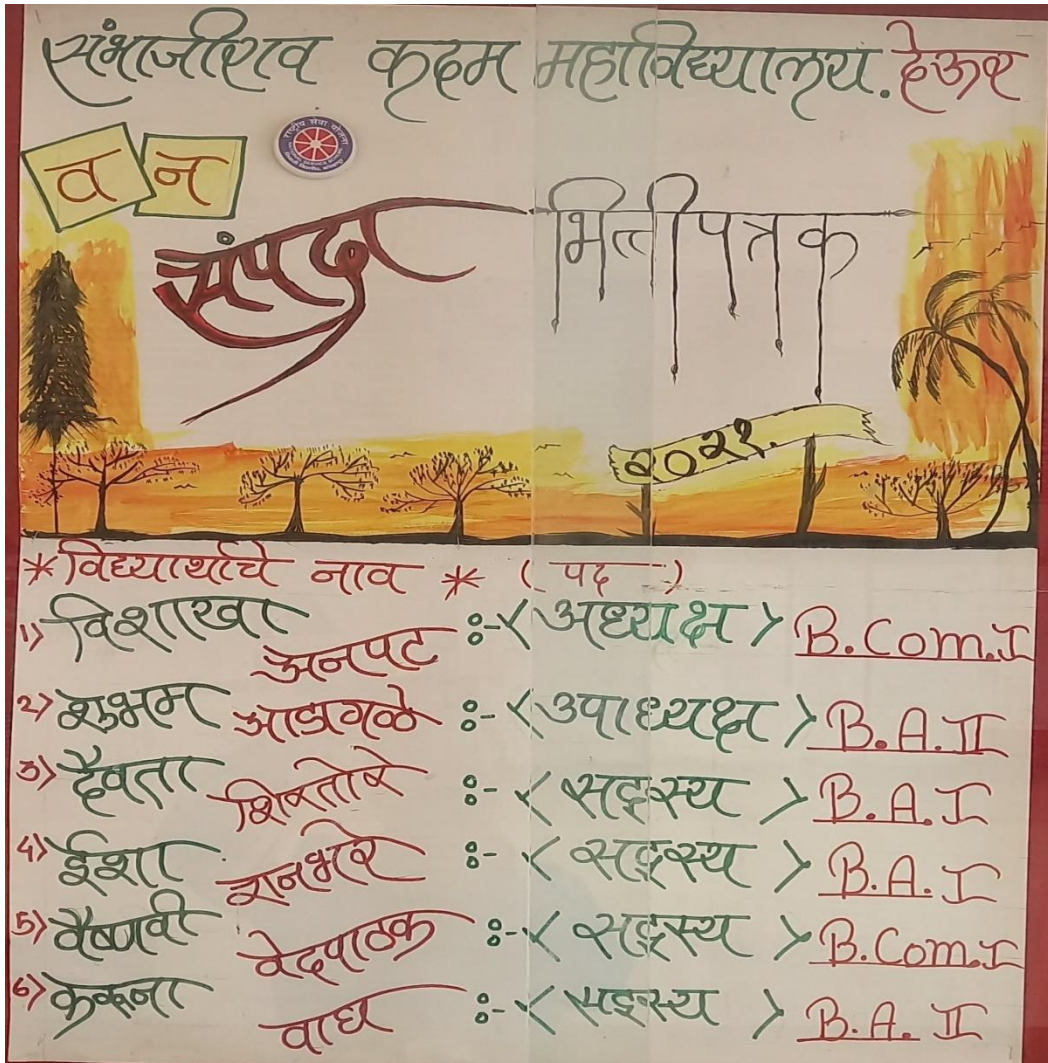 संभाजीराव कदम महाविद्यालय. देऊर
राष्ट्रीय सेवा योजना
व न
संपदा भित्तीपत्रक
२०२१.
* विद्यार्थ्याचे नाव * ( पद )
1) विशाखा अनपट :- < अध्यक्ष > B.Com.I
2) शुभम आडागळे :- < उपाध्यक्ष > B.A.II
3) दैवता शिरतोडे :- < सदस्य > B.A.I
4) ईशा रानभरे :- < सदस्य > B.A.I
5) वैष्णवी वेदपाठक :- < सदस्य > B.Com.I
6) करूना वाघ :- < सदस्य > B.A. II